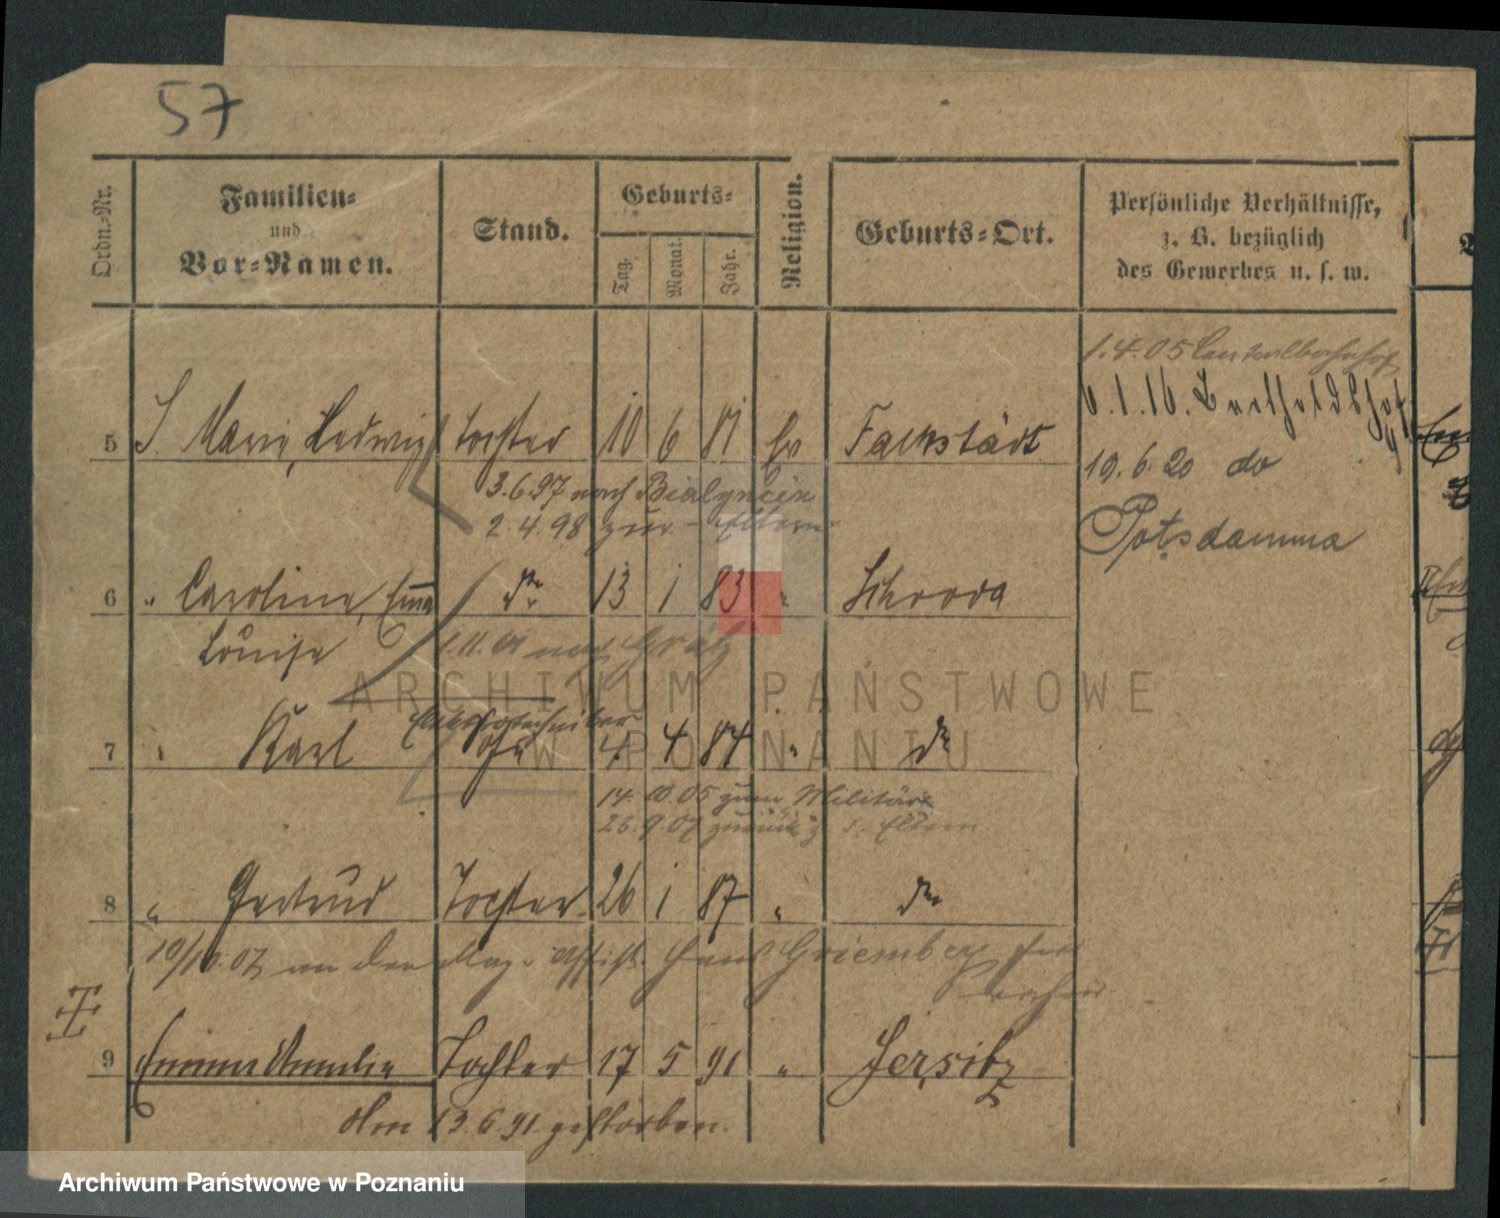 57
Ordn.-Nr.
Familien-
und
Vor-Namen.
Stand.
Geburts-
Tag.
Monat.
Jahr.
Religion.
Geburts-Ort.
Persönliche Verhältnisse,
z. B. bezüglich
des Gewerbes u. s. w.
1.4.05 Centralbahnhof
1.16. Bertholdshof
19.6.20 do
Potsdamma
5 S. Marie, Hedwig Tochter 10 6 81 Ev Fachstädt
3.6.97 nach
2.4.98 zur. Eltern
6 " Caroline, Emma do 13 1 83 " Schroda
Louise
1.11. nach Grätz
Elektrotechniker
7 " Karl 4 4 84 " do
14.10.05 zum Militär
23.9.07 zurück z. s. Eltern
8 " Gertrud Tochter 26 1 87 " do
19/10.07 an den Mag. Assist. Hans
9 Emma Amalie Tochter 17 5 91 " Jersitz
Am 13.6.91 gestorben.
ARCHIWUM PAŃSTWOWE
W POZNANIU
Archiwum Państwowe w Poznaniu